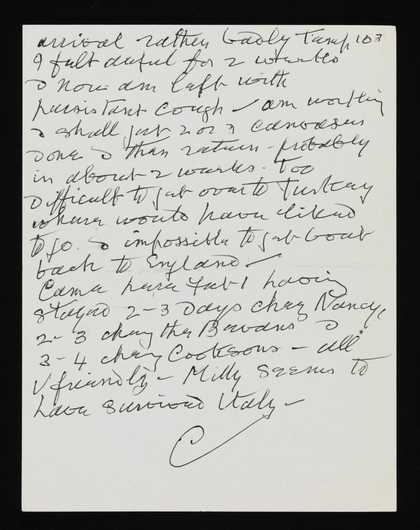 arrival rather badly Temp 103
I felt awful for 2 weeks
& now am left with
persistent cough – am working
& shall get 2 or 3 canvases
done & then return – probably
in about 2 weeks. Too
difficult to get over to Turkey
where would have liked
to go. & impossible to get boat
back to England –
Came here Feb 1 having
stayed 2–3 days chez Nancy,
2–3 chez the Bevans &
3–4 chez Cooksons – all
v friendly – Milly seems to
have survived Italy –
C